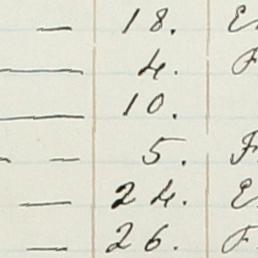 — 18. E
— 4. F
— 10.
— — 5. F
— 24. E
— 26. F